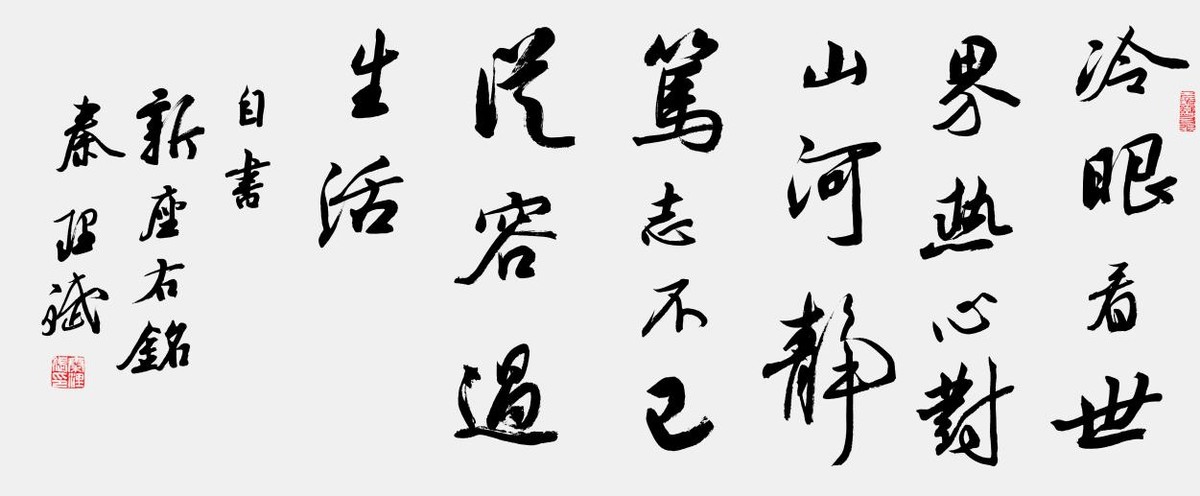 冷眼看世
界熱心對
山河靜
篤志不已
從容過
生活
自書
新座右銘
秦理斌